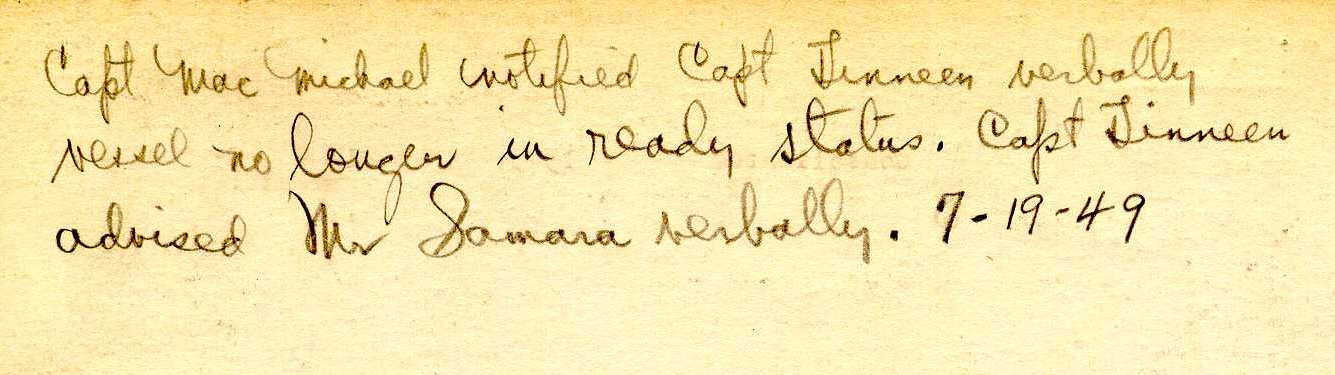 Capt Mac Michael notified Capt Tinneen verbally
vessel no longer in ready status. Capt Tinneen
advised Mr Samara verbally. 7-19-49